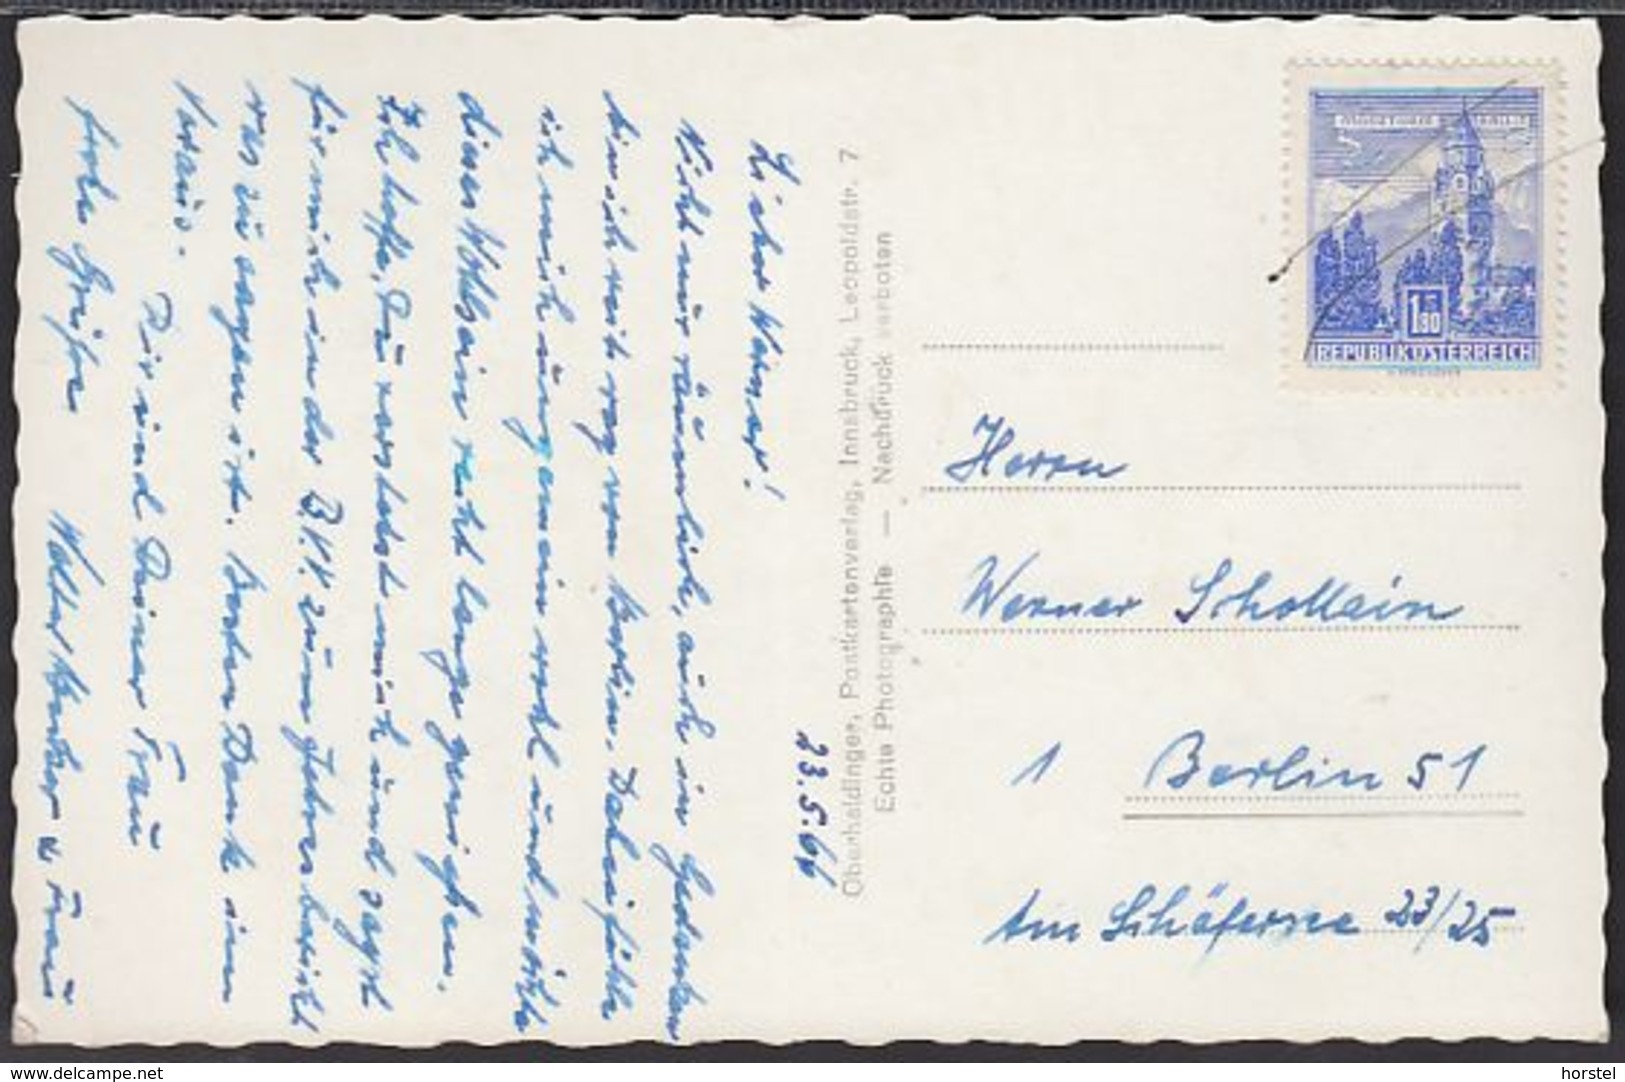 23.5.66
Lieber Werner!
Nicht nur räumlich, auch in Gedanken
bin ich weit weg von Berlin. Dabei fühle
ich mich ungemein wohl und möchte
dieses Wohlsein recht lange genießen.
Ich hoffe, Du verstehst mich und sagst
für mich in der B.V.V. zum Jahresbericht
was zu sagen ist. Besten Dank im
Voraus.
Dir und Deiner Frau
frohe Grüße
Walter u. Frau
Oberhaidinger, Postkartenverlag, Innsbruck, Leopoldstr. 7
Echte Photographie — Nachdruck verboten
1.80
REPUBLIK ÖSTERREICH
Herrn
Werner Schollein
1 Berlin 51
Am Schäfersee 23/25
www.delcampe.net
horstel